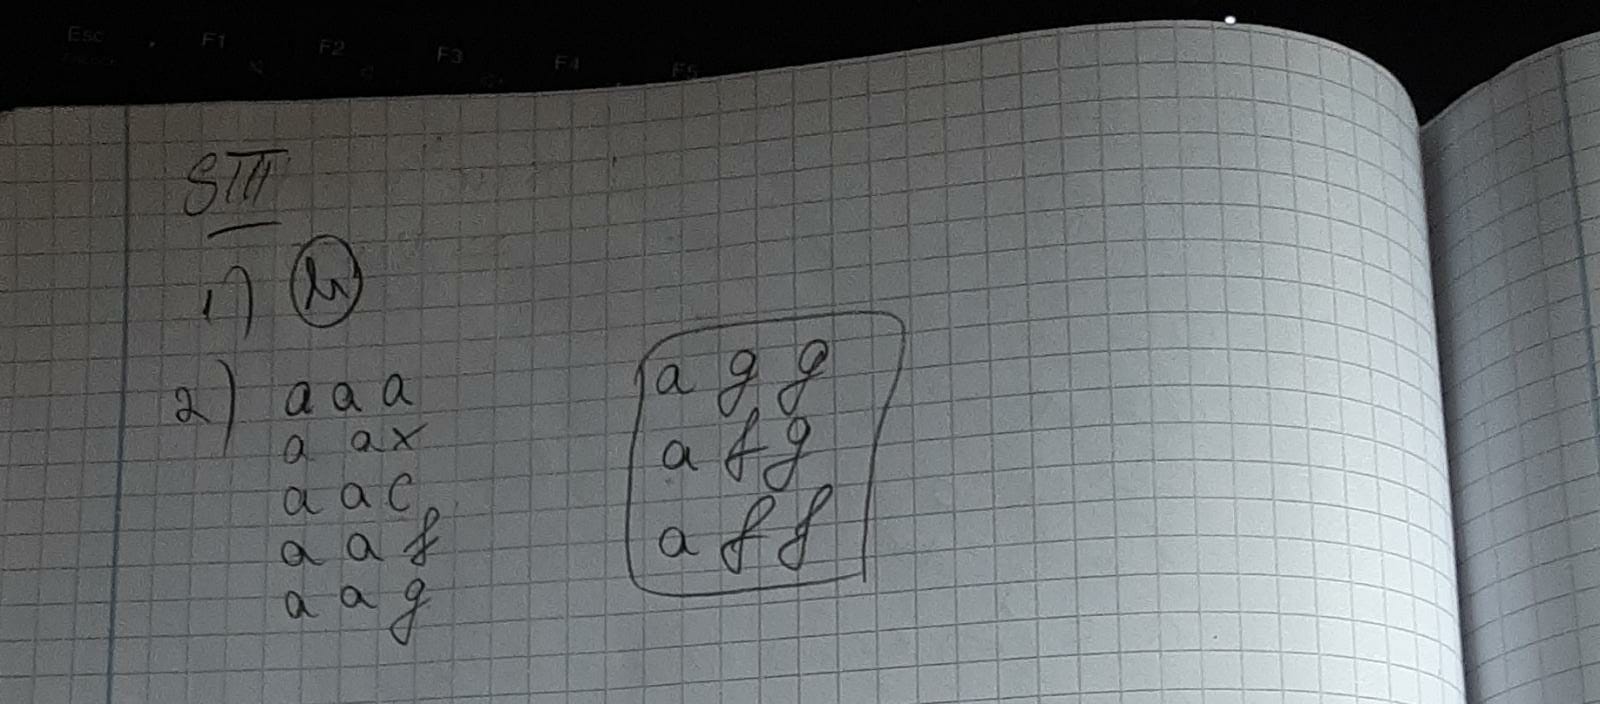 Esc F1 F2 F3 F4 F5
SIII
1)
2) a a a
a a x
a a c
a a f
a a g
a g g
a f g
a f f